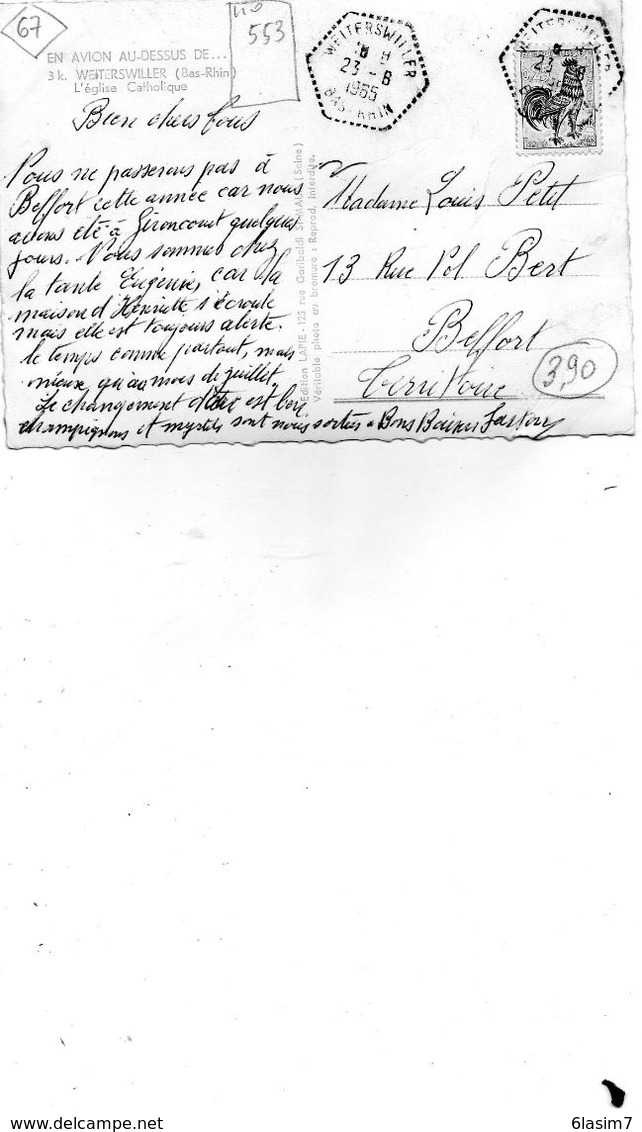 67
NO
553
EN AVION AU-DESSUS DE...
3 k. WEITERSWILLER (Bas-Rhin)
L'église Catholique
WEITERSWILLER
23 - 6
1965
BAS-RHIN
WEITERSWILLER
23 - 6
0,25
Bien chers tous
Nous ne passerons pas à
Belfort cette année car nous
avons été à Gironcourt quelques
jours. Nous sommes chez
la tante Eugénie, car la
maison d'Henriette s'écroule
mais elle est toujours alerte.
le temps comme partout, mais
mieux qu'au mois de juillet.
Le changement d'air est bon
champignons et myrtils sont nous sorties. Bons Baisers
Edition LAPIE - 125 rue Garibaldi ST-MAUR (Seine)
Véritable photo au bromure : Reprod. Interdite.
Madame Louis Petit
13 Rue Pol Bert
Belfort
Territoire
390
6lasim7